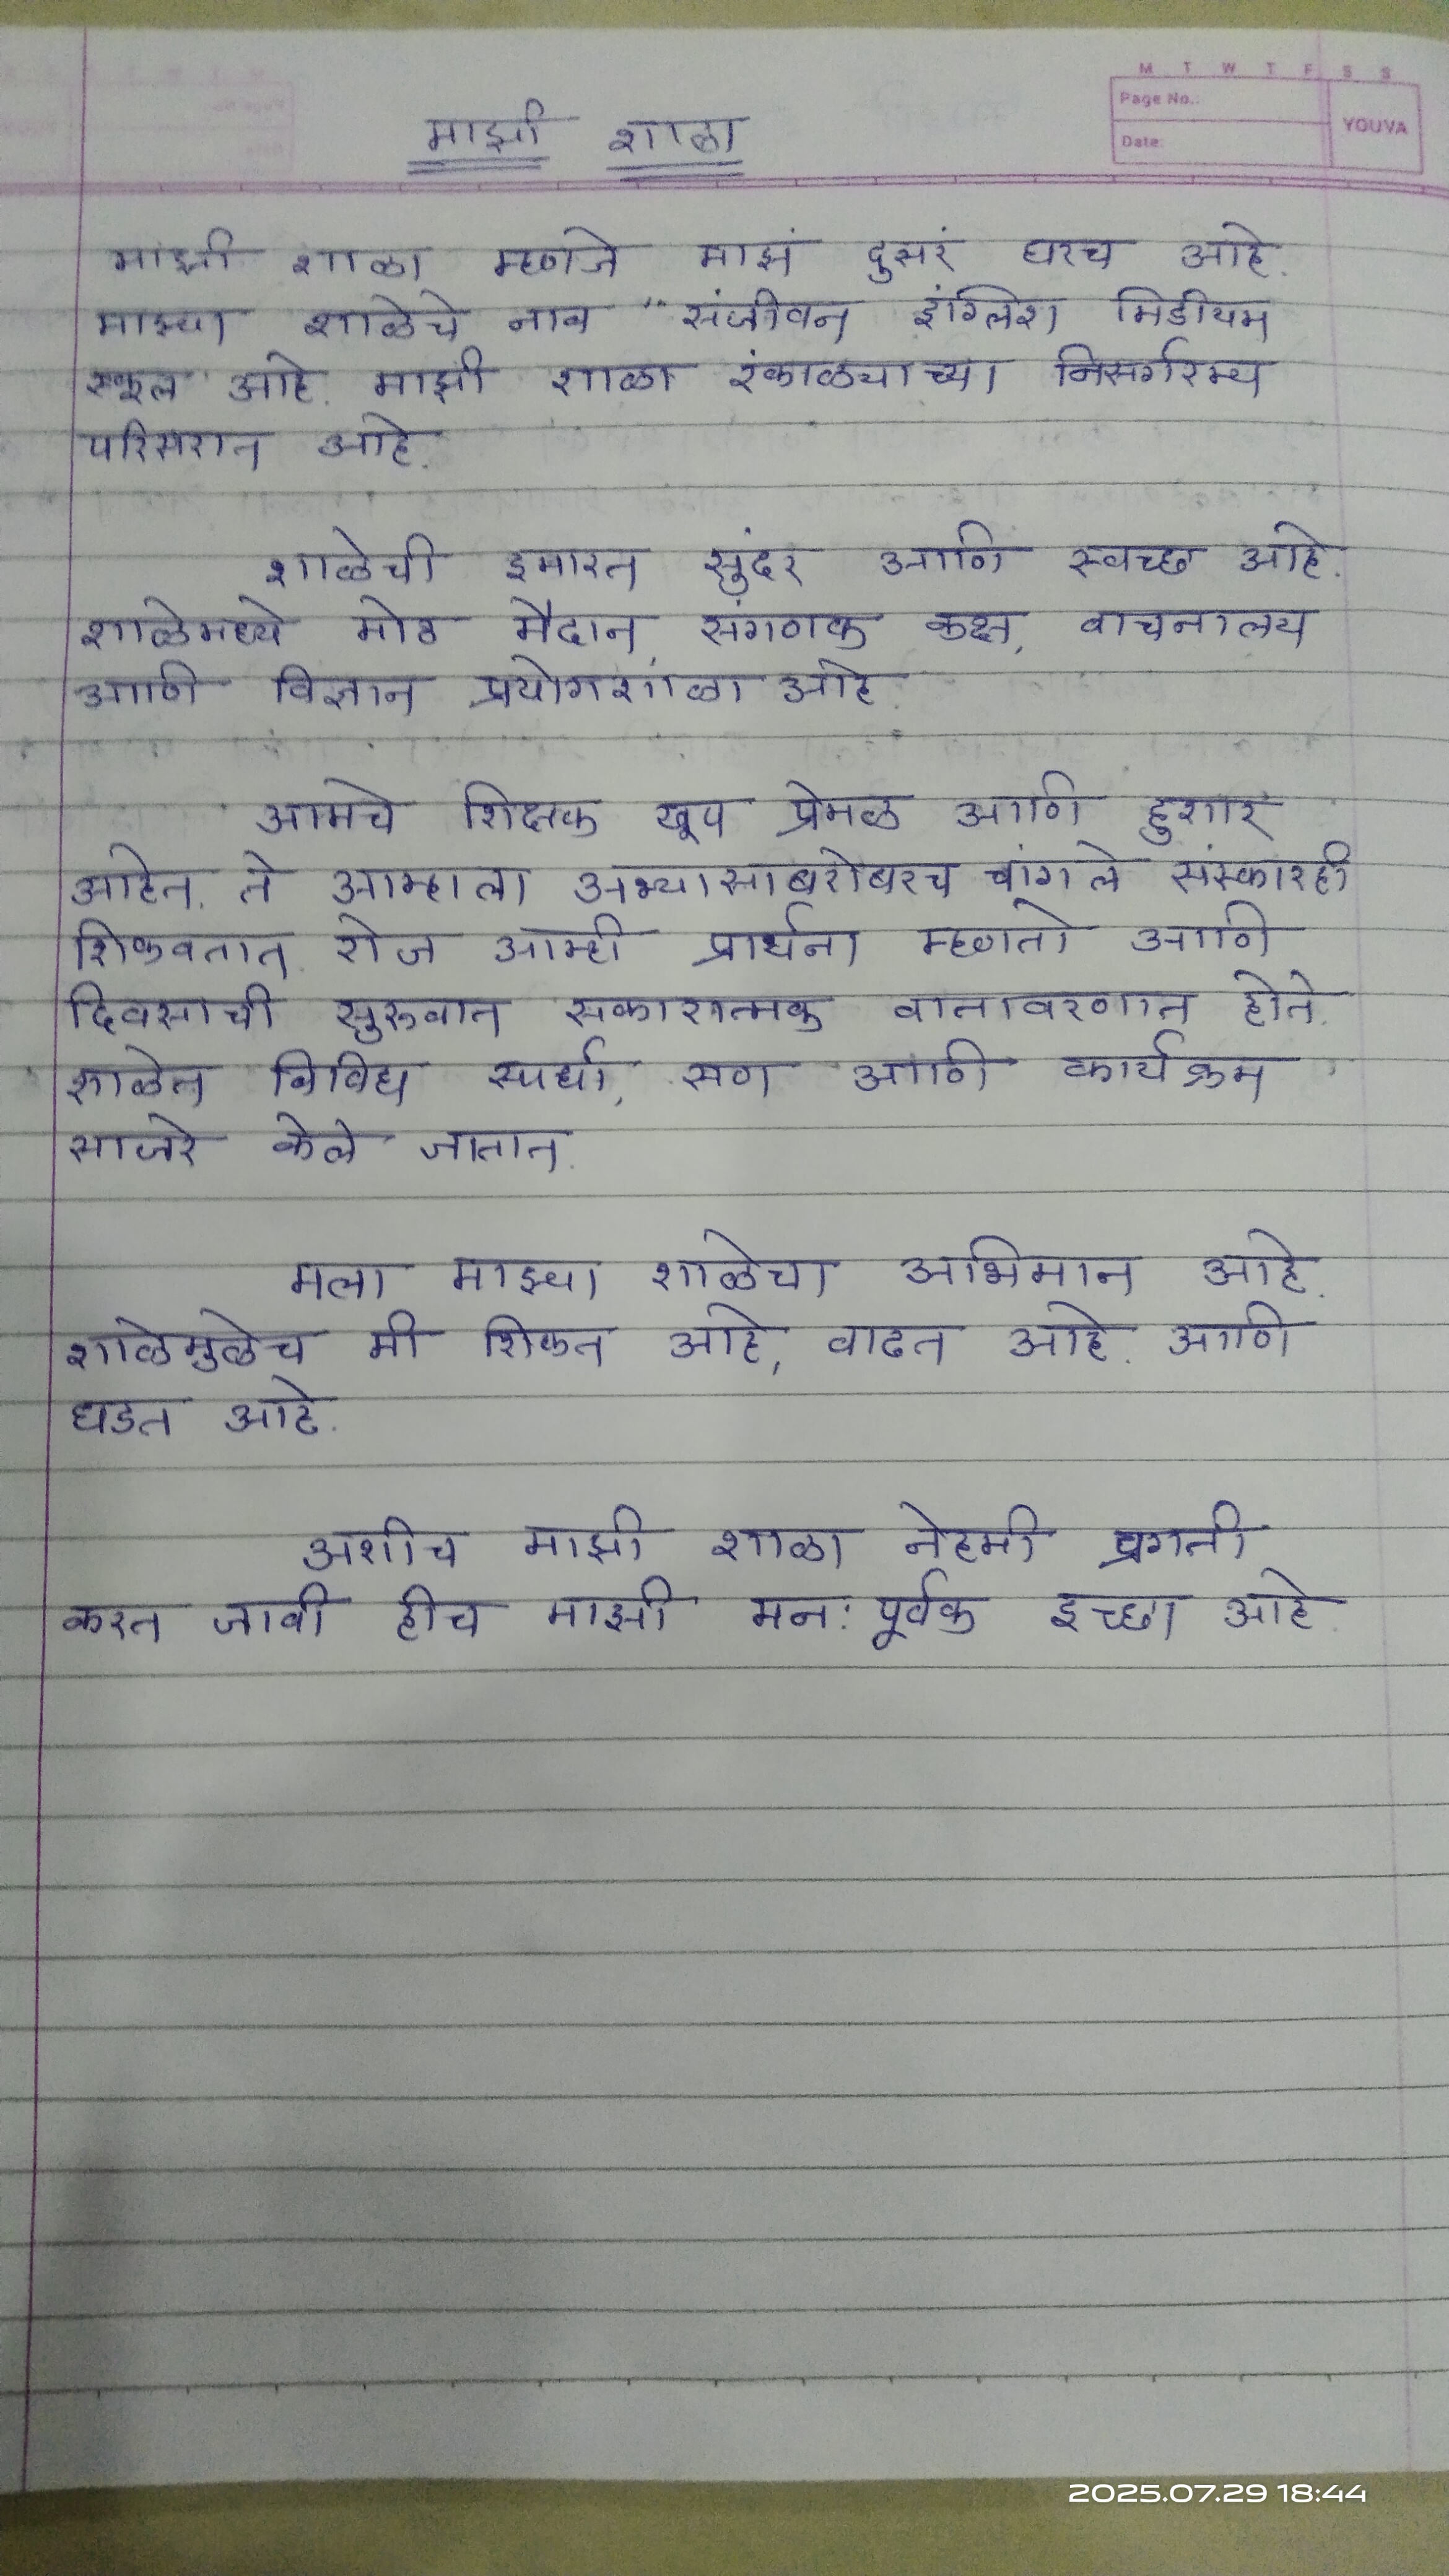 M T W T F S S
Page No.:
YOUVA
Date:
माझी शाळा
माझी शाळा म्हणजे माझं दुसरं घरच आहे.
माझ्या शाळेचे नाव "संजीवन इंग्लिश मिडीयम
स्कूल आहे. माझी शाळा रंकाळ्याच्या निसर्गरम्य
परिसरात आहे.
शाळेची इमारत सुंदर आणि स्वच्छ आहे.
शाळेमध्ये मोठ मैदान, संगणक कक्ष, वाचनालय
आणि विज्ञान प्रयोगशाळा आहे.
आमचे शिक्षक खूप प्रेमळ आणि हुशार
आहेत. ते आम्हाला अभ्यासाबरोबरच चांगले संस्कारही
शिकवतात. रोज आम्ही प्रार्थना म्हणतो आणि
दिवसाची सुरुवात सकारात्मक वातावरणात होते.
शाळेत विविध स्पर्धा, सण आणि कार्यक्रम
साजरे केले जातात.
मला माझ्या शाळेचा अभिमान आहे.
शाळेमुळेच मी शिकत आहे, वाढत आहे. आणि
घडत आहे.
अशीच माझी शाळा नेहमी प्रगती
करत जावी हीच माझी मनःपूर्वक इच्छा आहे.
2025.07.29 18:44